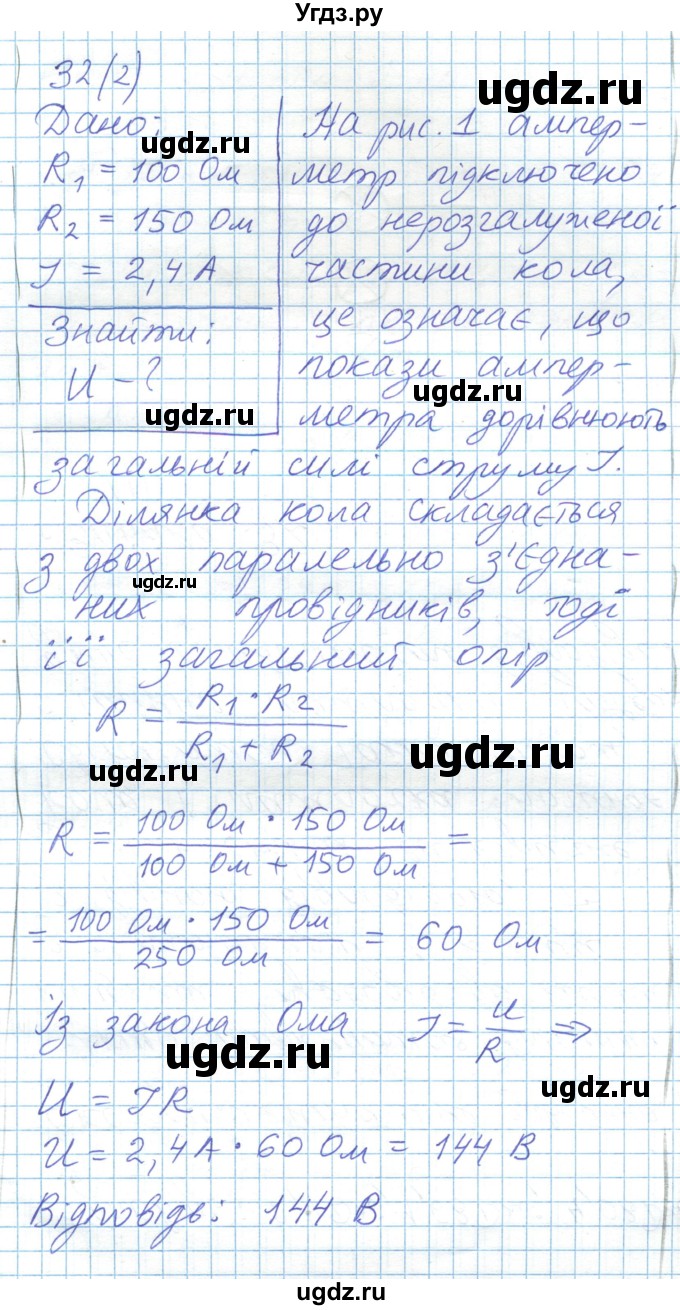 Угдз.ру
32(2)
ugdz.ru
Дано:
ugdz.ru
R₁ = 100 Ом
R₂ = 150 Ом
I = 2,4 А
Знайти:
U - ?
ugdz.ru
На рис. 1 ампер-
метр підключено
до нерозгалуженої
частини кола,
це означає, що
покази ампер-
ugdz.ru
метра дорівнюють
загальній силі струму I.
Ділянка кола складається
з двох паралельно з'єдна-
ugdz.ru
них провідників, тоді
її загальний опір
R = R₁ · R₂ / R₁ + R₂
ugdz.ru
ugdz.ru
R = 100 Ом · 150 Ом / 100 Ом + 150 Ом =
= 100 Ом · 150 Ом / 250 Ом = 60 Ом
Із закона Ома I = U / R ⇒
ugdz.ru
ugdz.ru
U = IR
U = 2,4 А · 60 Ом = 144 В
Відповідь: 144 В
ugdz.ru
ugdz.ru